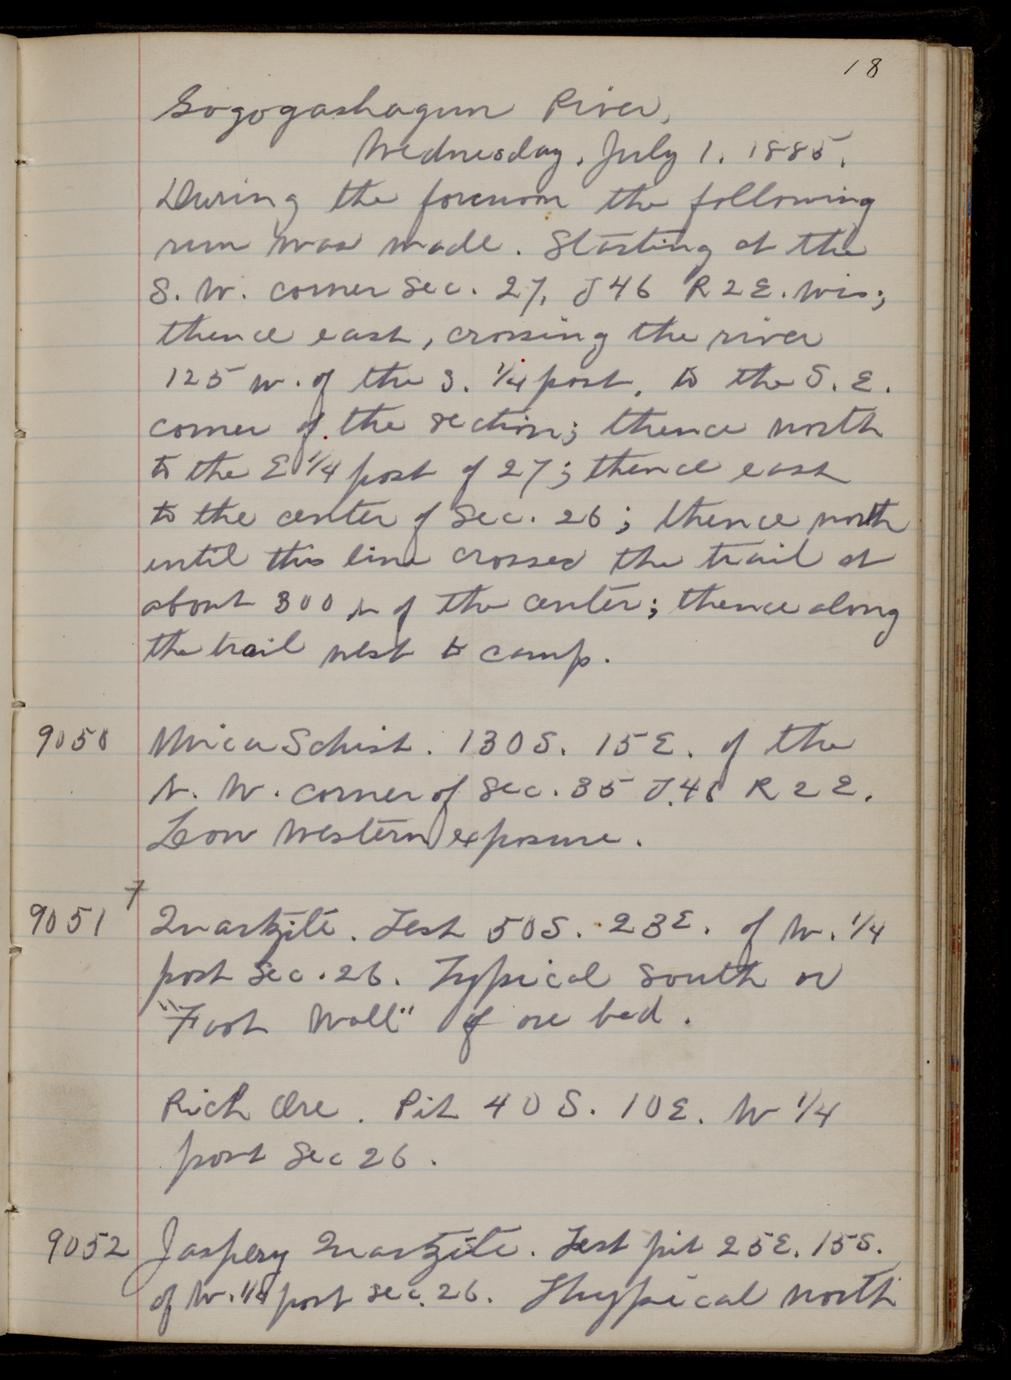 18
Gogogashagun River,
Wednesday, July 1. 1885.
During the forenoon the following
run was made. Starting at the
S. W. corner Sec. 27, T46 R2E. Wis;
thence east, crossing the river
125 w. of the S. 1/4 post, to the S. E.
corner of the section; thence north
to the E 1/4 post of 27; thence east
to the center of Sec. 26; thence north
until this line crosses the trail at
about 300 N of the center; thence along
the trail west to camp.
9050 Mica Schist. 130S. 15E. of the
N. W. corner of Sec. 35 T.46 R2E.
Low Western exposure.
9051 Quartzite. Test 50S. 23E. of W. 1/4
post Sec. 26. Typical South or
"Foot Wall" of ore bed.
Rich Ore. Pit 40S. 10E. W 1/4
post Sec 26.
9052 Jaspery Quartzite. Test pit 25E. 15S.
of W. 1/4 post Sec. 26. Thypical north